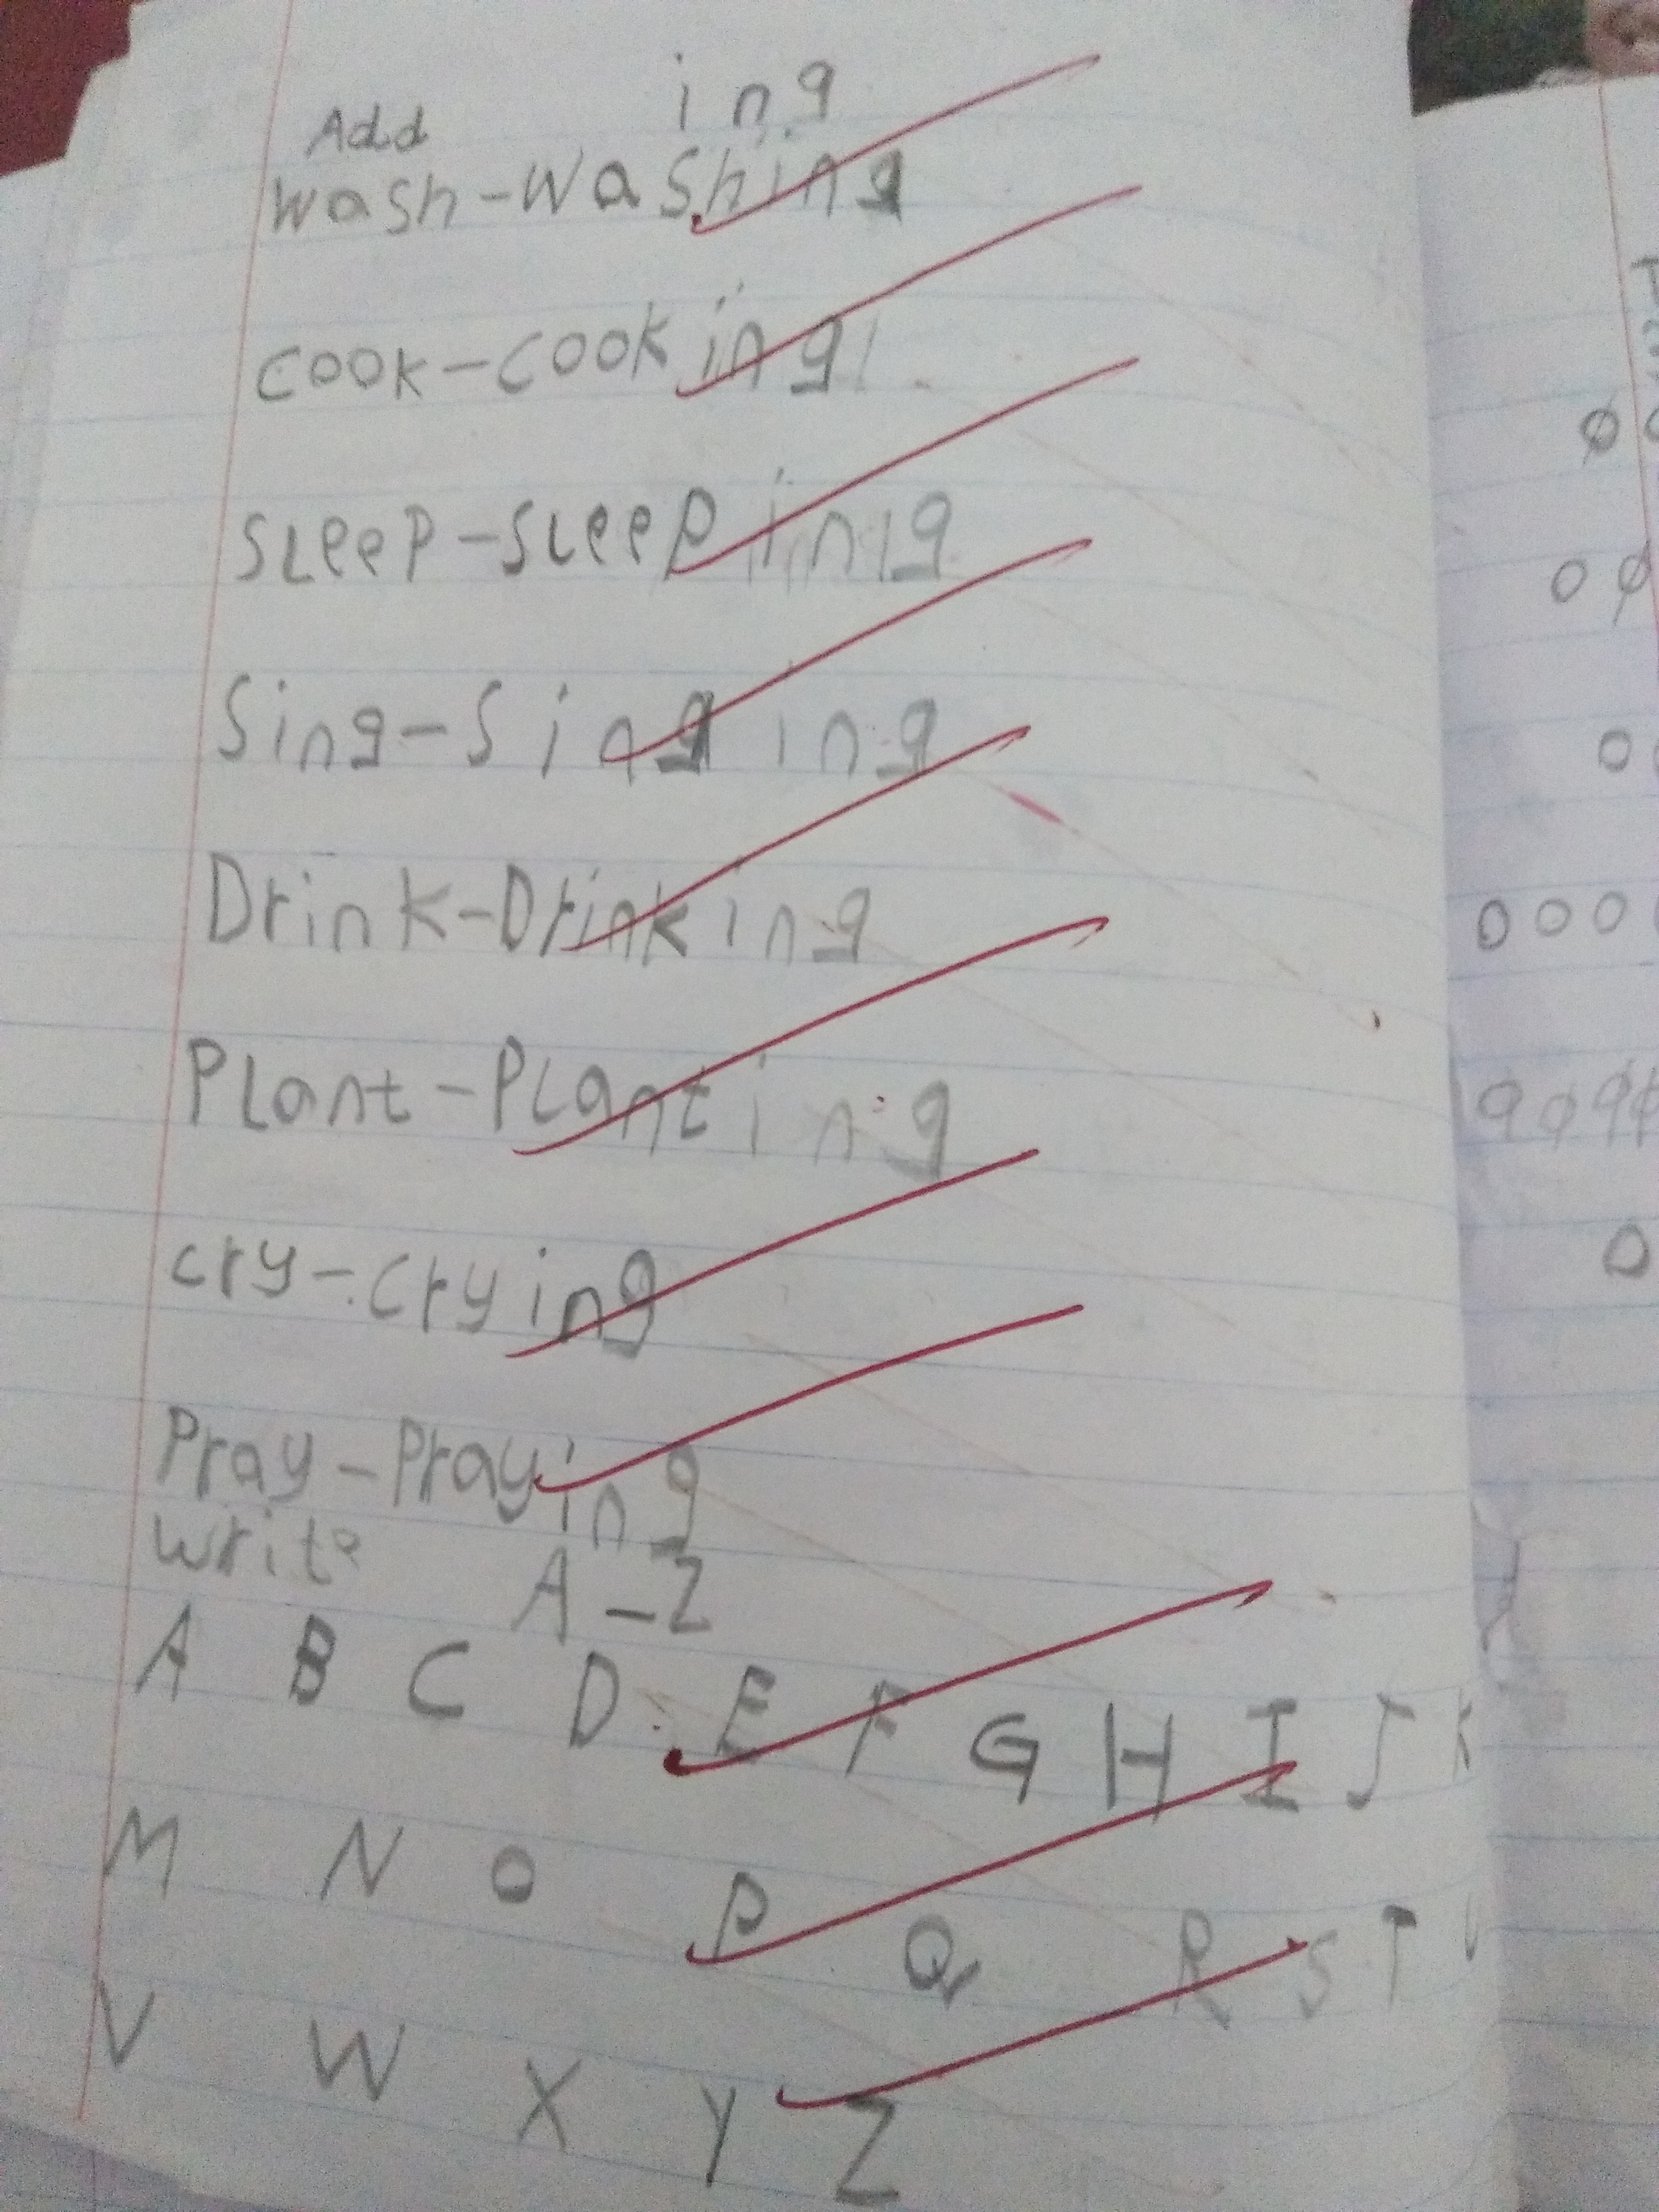 Add ing
Wash-Washing
Cook-Cooking
SLeeP-SLeeping
Sing-Singing
Drink-Drinking
PLant-PLanting
cry-crying
Pray-Praying
write A-Z
A B C D E F G H I J K
M N O P Q R S T U
V W X Y Z